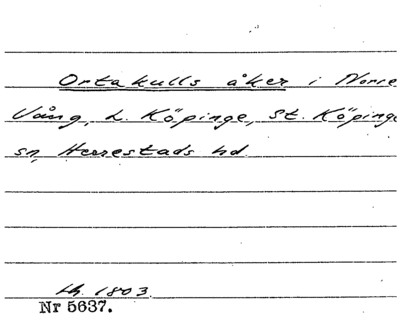 Ortakulls åker i Norre
Vång, L. Köpinge, St. Köpinge
sn, Herrestads hd.
Lh. 1803.
Nr 5637.